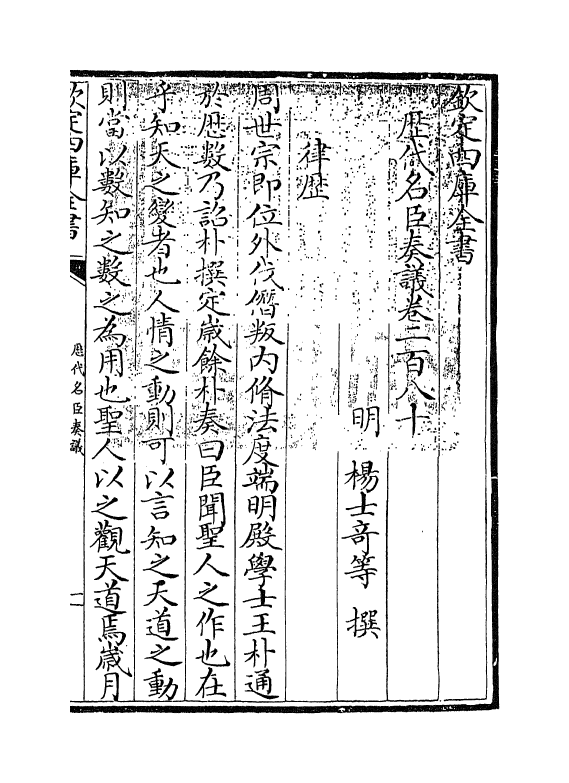 欽定四庫全書
歴代名臣奏議卷二百八十
明 楊士竒等 撰
律歴
周世宗即位外伐僭叛内脩法度端明殿學士王朴通
於厯數乃詔朴撰定歲餘朴奏曰臣聞聖人之作也在
乎知天之變者也人情之動則可以言知之天道之動
則當以數知之數之為用也聖人以之觀天道焉歲月
欽定四庫全書
歴代名臣奏議
一